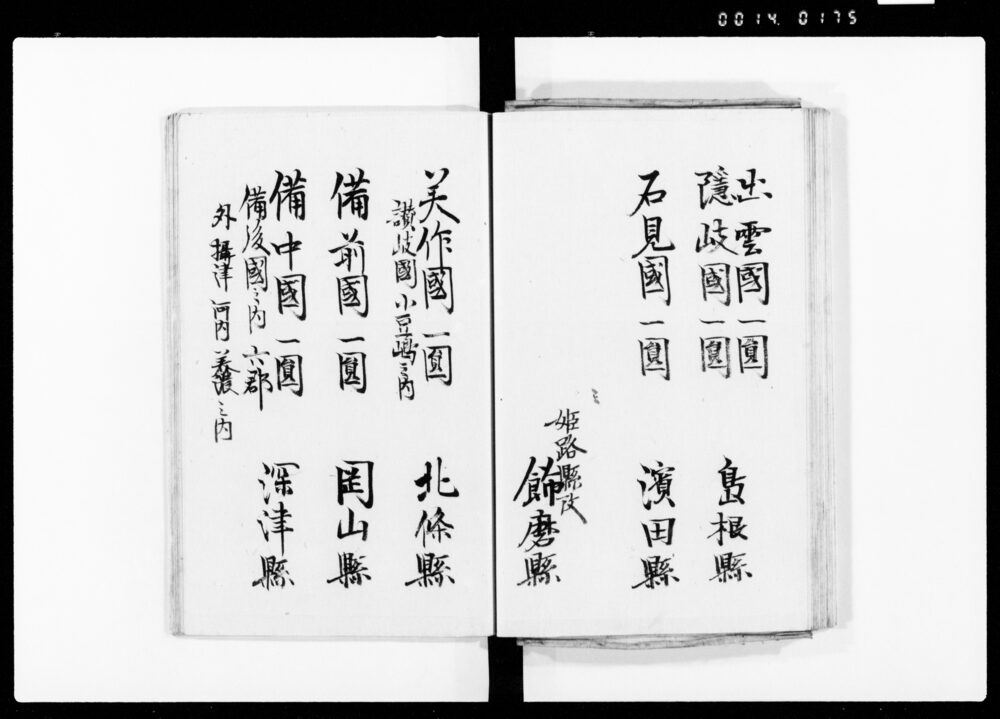 0014 0175
出雲國一圓
隱岐國一圓
島根縣
石見國一圓
濱田縣
姫路縣改
飾磨縣
美作國一圓
讃岐國小豆嶋之内
北條縣
備前國一圓
岡山縣
備中國一圓
備後國之内六郡
外攝津河内美濃之内
深津縣